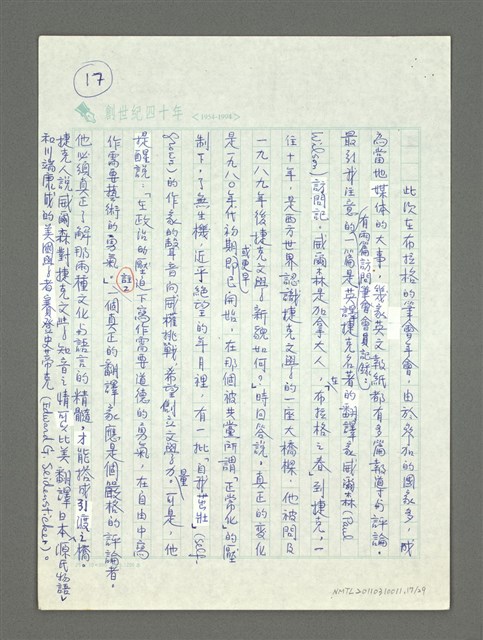 17
創世紀四十年 <1954-1994>
此次在布拉格的筆會年會,由於參加的國家多,成
為當地媒体的大事,幾家英文報紙都有多篇報導与評論。
有兩篇訪問筆會會員記錄:
最引我注意的一篇是英譯捷克名著的翻譯家威爾森(Paul
Wilson)訪問記。威爾森是加拿大人,「布拉格之春」到捷克,一
在
住十年,是西方世界認識捷克文學的一座大橋樑,他被問及
一九八九年後捷克文學新貌如何?」時回答說,真正的變化
或更早
是一九八〇年代初期即已開始,在那個被共黨所謂「正常化」的壓
制下,了無生機,近乎絕望的年月裡,有一批「自我茁壯」(Self-
的作家的聲音向威權挑戰,希望創立文學力量。可是,他
提醒說:「在政治的壓迫下寫作需要道德的勇氣,在自由中寫
作需要藝術的勇氣」註2一個真正的翻譯家應是個嚴格的評論者。
他必須真正了解那兩種文化与語言的精髓,才能搭成引渡之橋。
捷克人說威爾森對捷克文學知音之情可以比美翻譯日本《源氏物語》
和川端康成的美國學者賽登史帝克(Edward G. Seidensticker)。
NMTL20110310011.17/29